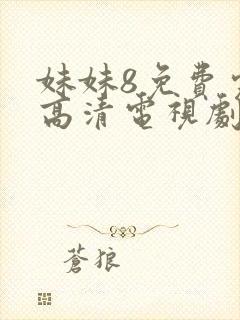 妹妹8免費
高清電視劇
蒼狼